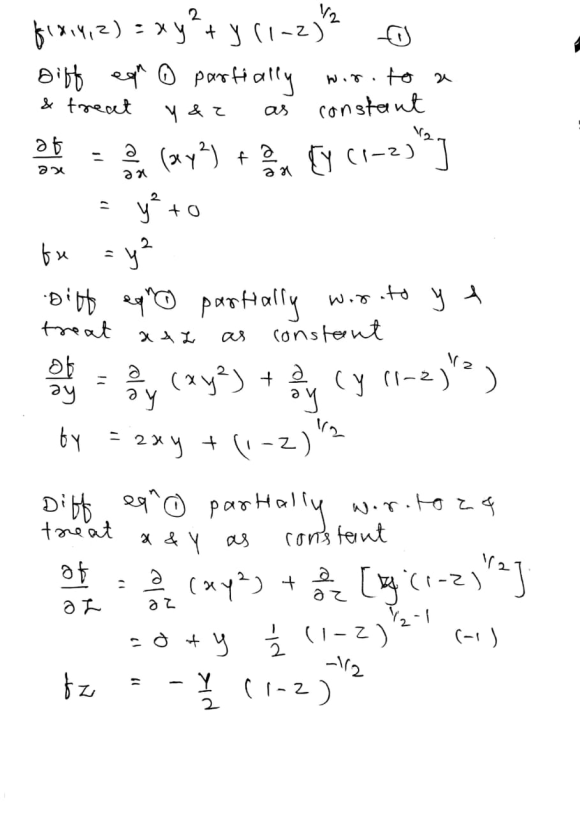 f(x,y,z) = xy² + y (1-z)^1/2 —①
Diff eqⁿ ① partially w.r. to x
& treat y & z as constant
∂f/∂x = ∂/∂x (xy²) + ∂/∂x [y (1-z)^1/2]
= y² + 0
fx = y²
Diff eqⁿ① partially w.r.to y &
treat x & z as constant
∂f/∂y = ∂/∂y (xy²) + ∂/∂y (y (1-z)^1/2)
fy = 2xy + (1-z)^1/2
Diff eqⁿ① partially w.r.to z &
treat x & y as constant
∂f/∂z = ∂/∂z (xy²) + ∂/∂z [y (1-z)^1/2]
= 0 + y 1/2 (1-z)^1/2-1 (-1)
fz = - y/2 (1-z)^-1/2